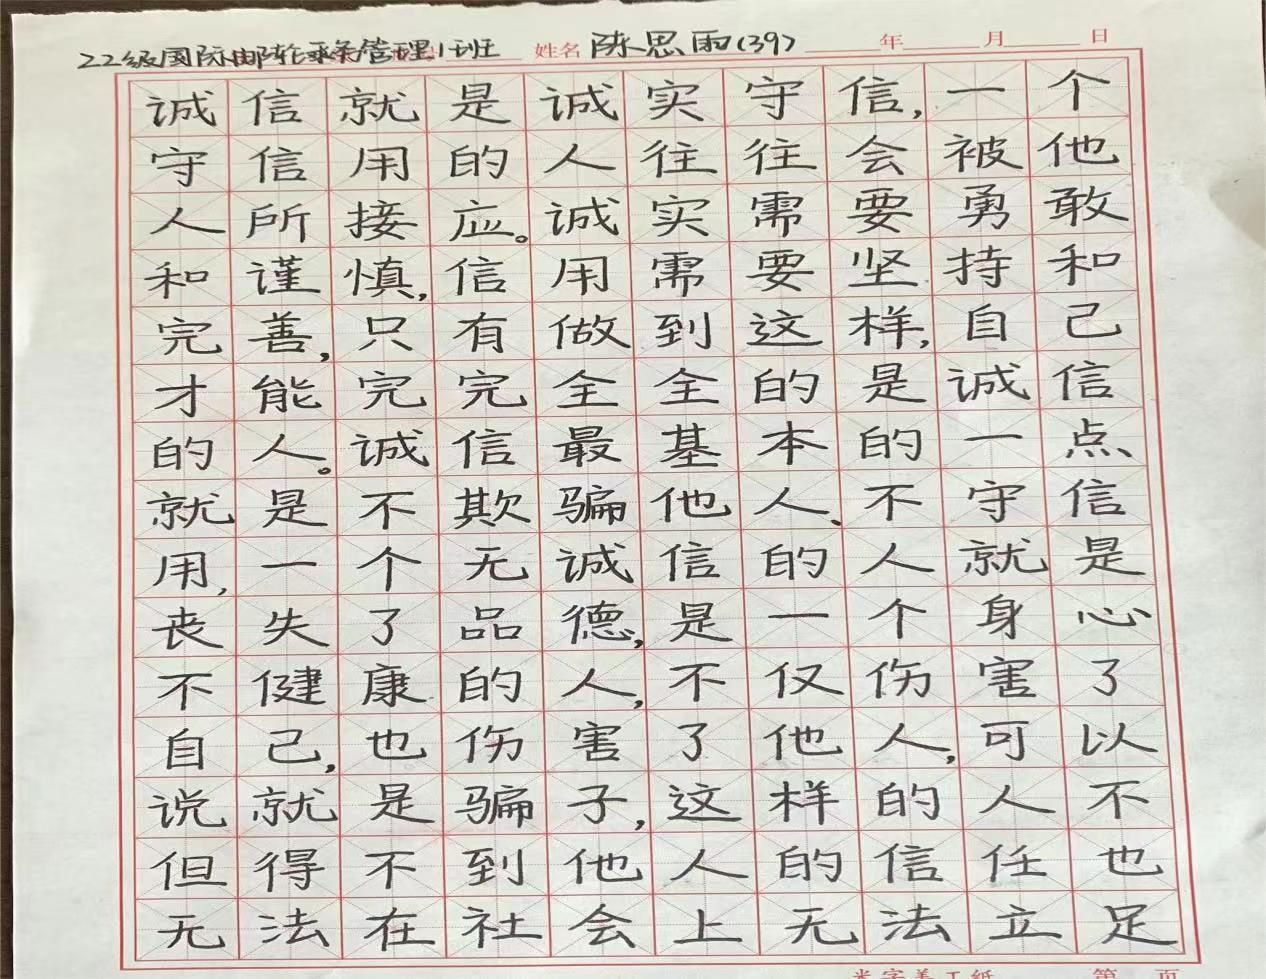 22级国际邮轮乘务管理1班 姓名 陈思雨(39) 年 月 日
诚信就是诚实守信,一个
守信用的人往往会被他
人所接应。诚实需要勇敢
和谨慎,信用需要坚持和
完善,只有做到这样,自己
才能完完全全的是诚信
的人。诚信最基本的一点
就是不欺骗他人、不守信
用,一个无诚信的人就是
丧失了品德,是一个身心
不健康的人,不仅伤害了
自己,也伤害了他人,可以
说就是骗子,这样的人不
但得不到他人的信任也
无法在社会上无法立足
米字美工纸 第 页